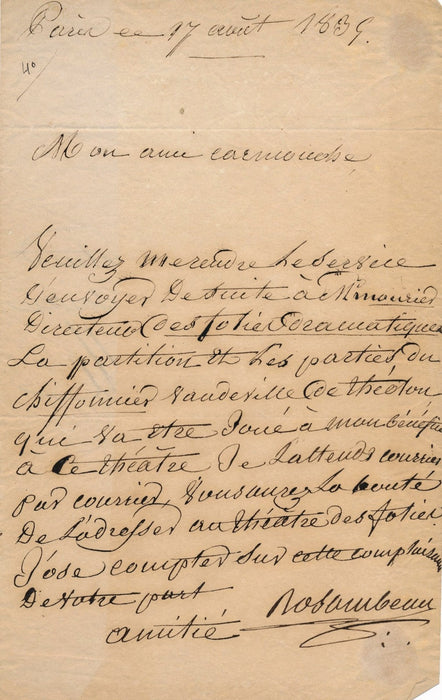 Paris ce 17 août 1839.
4°
Mon ami carmouche,
Veuillez merendre Leservice
D'envoyer Desuite à Mr mourier
Directeur des folies dramatiques
La partition et Les parties du
chiffonnier vaudeville de théolon
qui va etre Joué à mon bénéfice
à ce théâtre Je L'attends courrier
par courrier, Vous aurez La bonté
De L'adresser au théâtre des folies
J'ose compter sur cette complaisance
De votre part
amitié Rosambeau